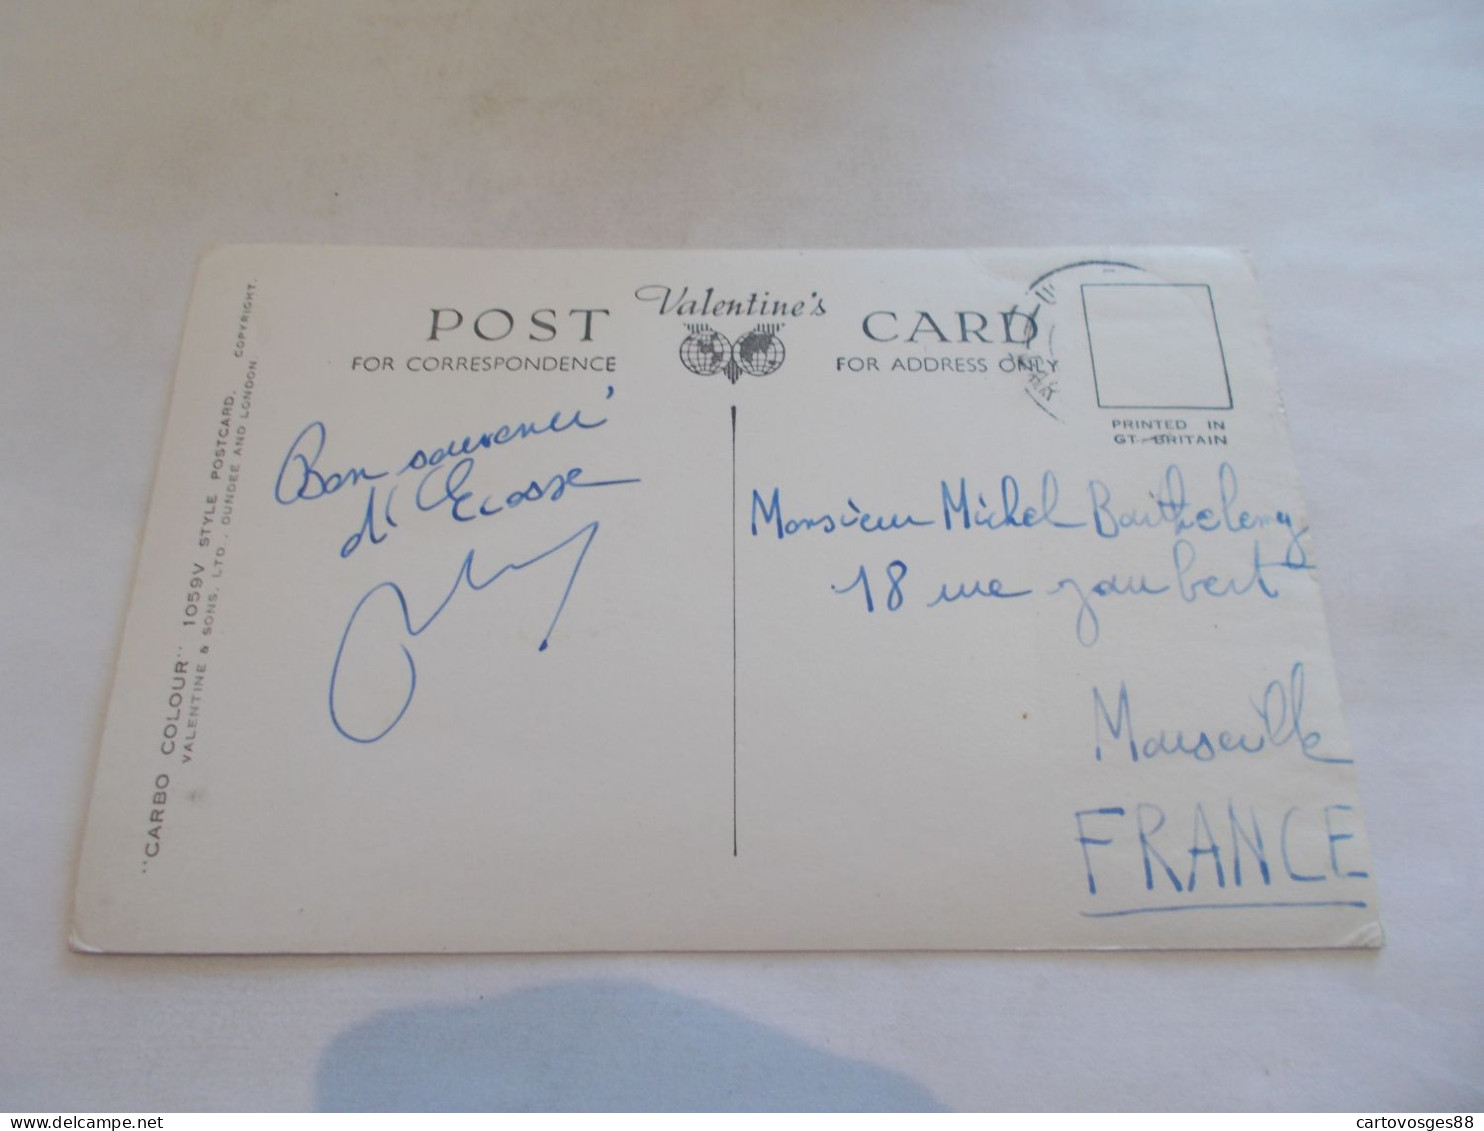 Valentine's
POST CARD
FOR CORRESPONDENCE
FOR ADDRESS ONLY
PRINTED IN
GT. BRITAIN
"CARBO COLOUR" 1059V STYLE POSTCARD.
VALENTINE & SONS, LTD., DUNDEE AND LONDON COPYRIGHT.
Bon souvenir
d'Ecosse
Monsieur Michel Barthelemy
18 rue Jaubert
Marseille
FRANCE
cartovosges88